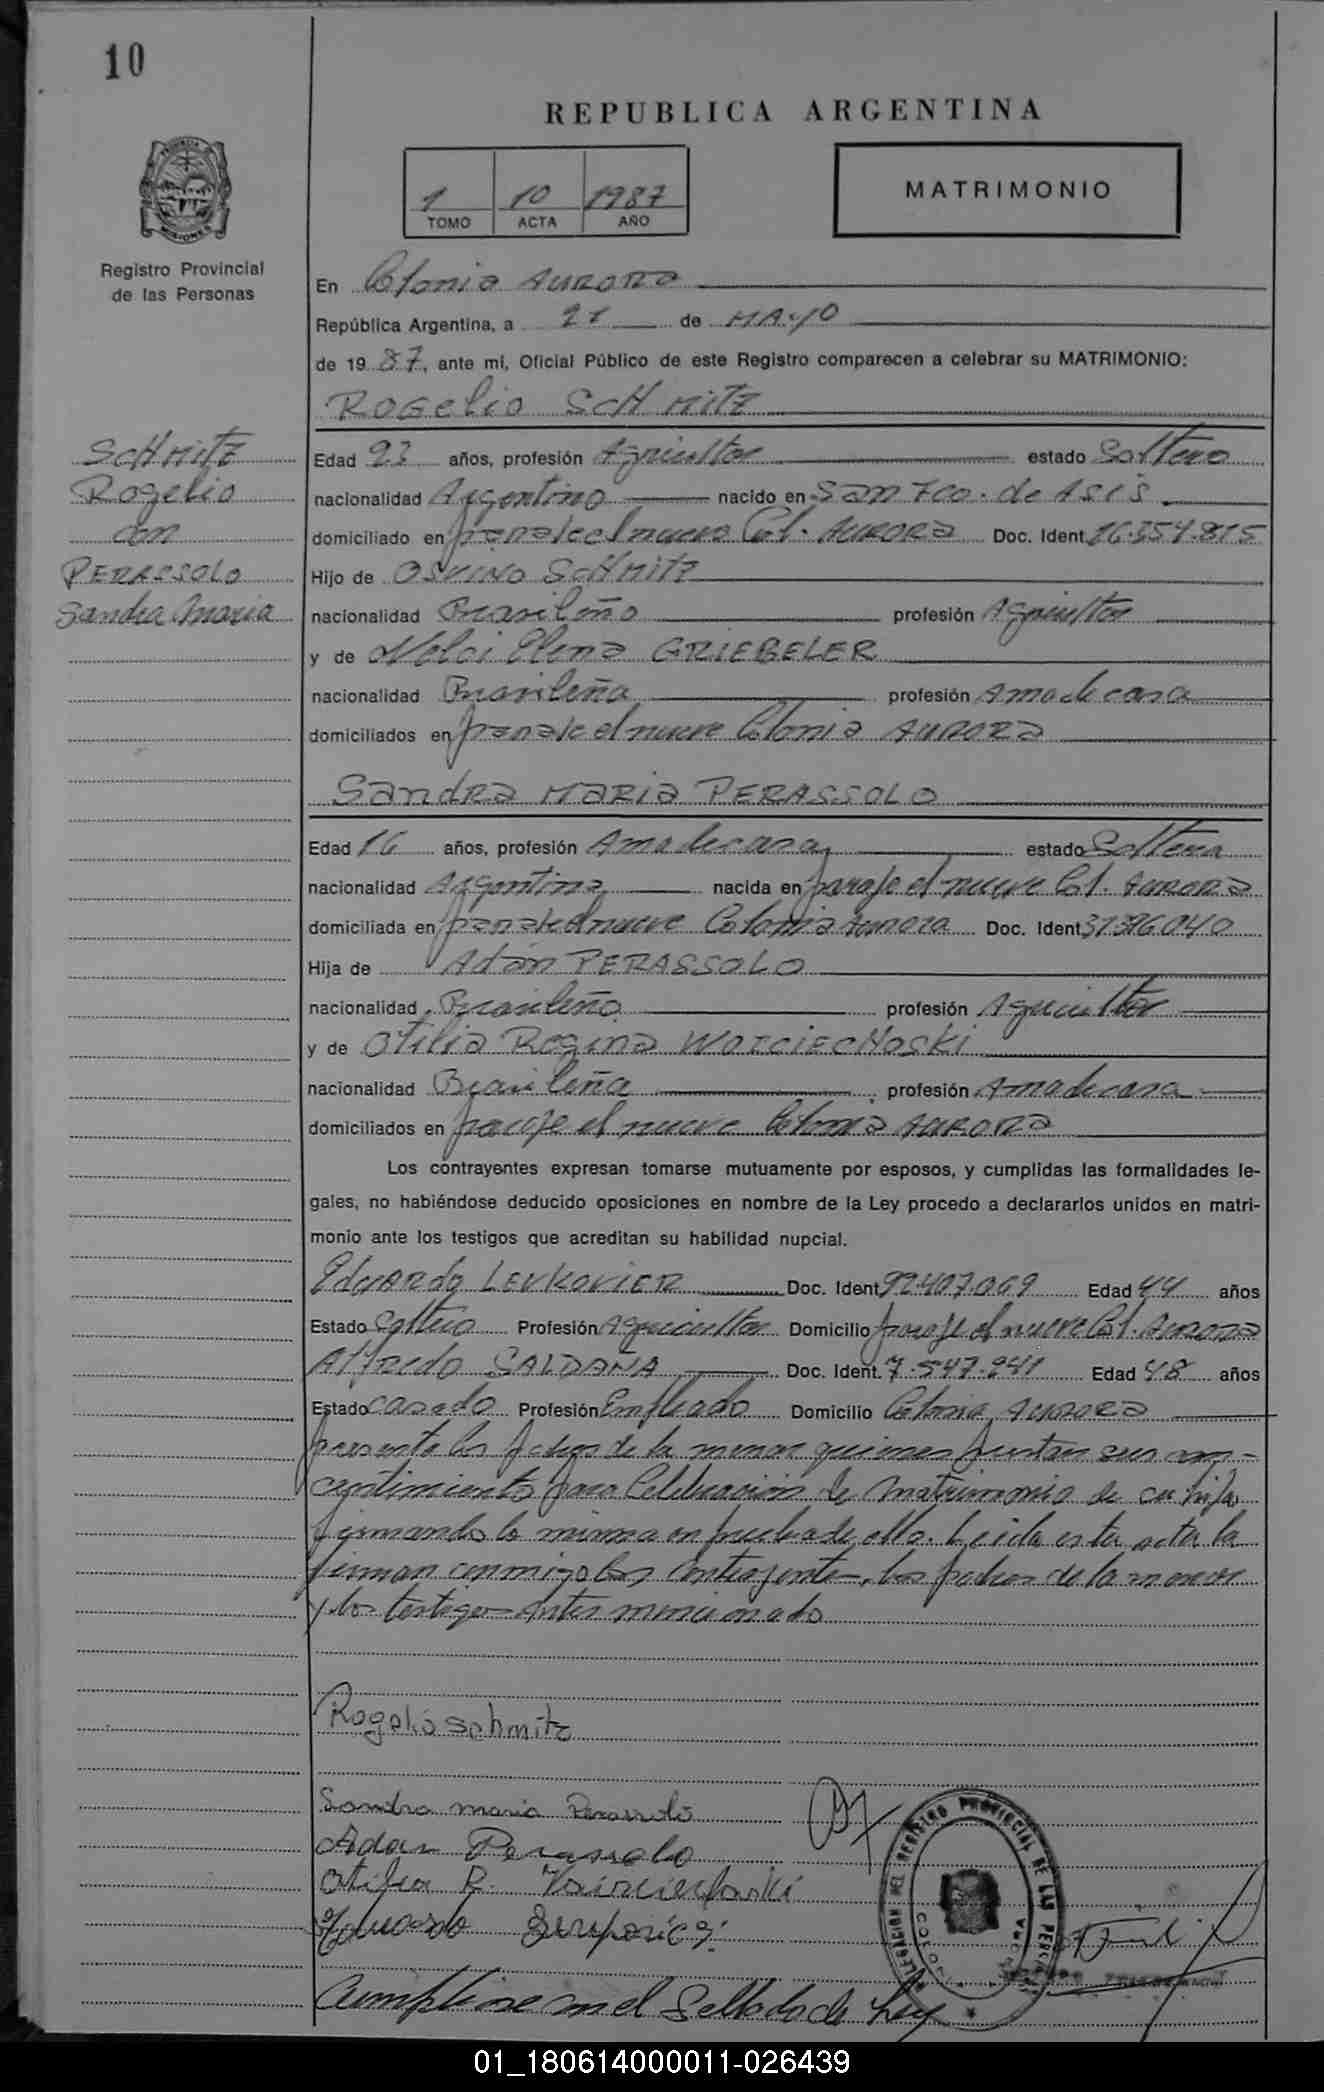 10
REPUBLICA ARGENTINA
1 10 1987
TOMO ACTA AÑO
MATRIMONIO
Registro Provincial
de las Personas
En Colonia AURORA
República Argentina, a 21 de MAYO
de 1987, ante mí, Oficial Público de este Registro comparecen a celebrar su MATRIMONIO:
ROGELIO SCHMITZ
SCHMITZ
Rogelio
con
PERASSOLO
Sandra Maria
Edad 23 años, profesión Agricultor estado Soltero
nacionalidad Argentino nacido en San Fco. de Asis
domiciliado en paraje el nueve Col. AURORA Doc. Ident. 16.354.815
Hijo de OSVINO SCHMITZ
nacionalidad Brasileño profesión Agricultor
y de Nelci Elena GRIEBELER
nacionalidad Brasileña profesión Ama de casa
domiciliados en paraje el nueve Colonia AURORA
Sandra Maria PERASSOLO
Edad 16 años, profesión Ama de casa estado Soltera
nacionalidad Argentina nacida en paraje el nueve Col. AURORA
domiciliada en paraje el nueve Colonia Aurora Doc. Ident
Hija de Adán PERASSOLO
nacionalidad Brasileño profesión Agricultor
y de Otilia Regina WOICIECHOSKI
nacionalidad Brasileña profesión Ama de casa
domiciliados en paraje el nueve Colonia AURORA
Los contrayentes expresan tomarse mutuamente por esposos, y cumplidas las formalidades le-
gales, no habiéndose deducido oposiciones en nombre de la Ley procedo a declararlos unidos en matri-
monio ante los testigos que acreditan su habilidad nupcial.
Eduardo LEVKOVIER Doc. Ident. 92.407.069 Edad 44 años
Estado Soltero Profesión Agricultor Domicilio paraje el nueve Col. AURORA
Alfredo SALDAÑA Doc. Ident. 7.547.241 Edad 48 años
Estado casado Profesión Empleado Domicilio Colonia AURORA
presente los padres de la menor quienes prestan sus con-
centimiento para Celebración de matrimonio de su hija
firmando la misma en prueba de ello. Leida esta acta la
firman conmigo los Contrayentes, los padres de la menor
y los testigos antes mencionado
Rogelio Schmitz
Sandra maria Perassolo
Adan Perassolo
Otilia R.
Cumplirse en el Sellado de Ley
DELEGACION DEL REGISTRO PROVINCIAL DE LAS PERSONAS
01_180614000011-026439